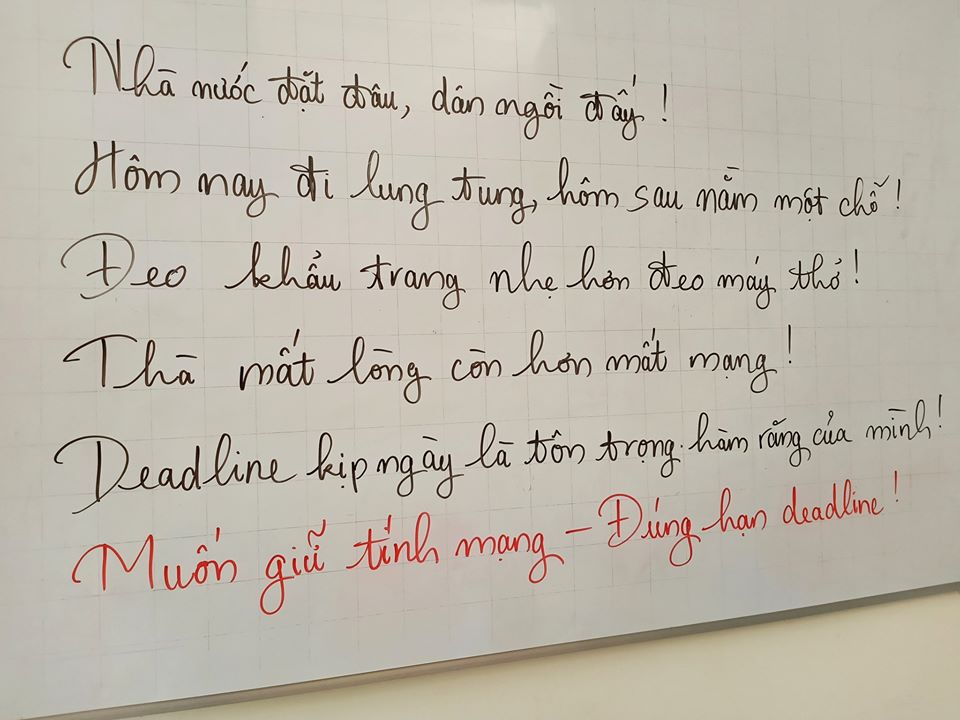 Nhà nước đặt đâu, dân ngồi đấy!
Hôm nay đi lung tung, hôm sau nằm một chỗ!
Đeo khẩu trang nhẹ hơn đeo máy thở!
Thà mất lòng còn hơn mất mạng!
Deadline kịp ngày là tôn trọng hàm răng của mình!
Muốn giữ tính mạng – Đúng hạn deadline!